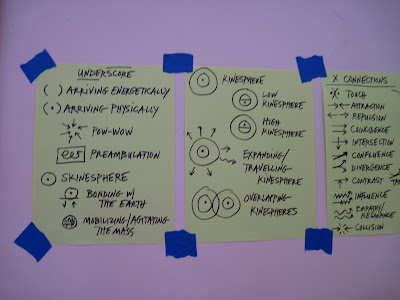 UNDERSCORE
ARRIVING ENERGETICALLY
ARRIVING PHYSICALLY
POW-WOW
PREAMBULATION
SKINESPHERE
BONDING W/
THE EARTH
MOBILIZING/AGITATING
THE MASS
KINESPHERE
LOW
KINESPHERE
HIGH
KINESPHERE
EXPANDING/
TRAVELLING
KINESPHERE
OVERLAPPING
KINESPHERES
X CONNECTIONS
TOUCH
ATTRACTION
REPULSION
COINCIDENCE
INTERSECTION
CONFLUENCE
DIVERGENCE
CONTRAST
INFLUENCE
EMPATHY/
RESONANCE
COLLUSION